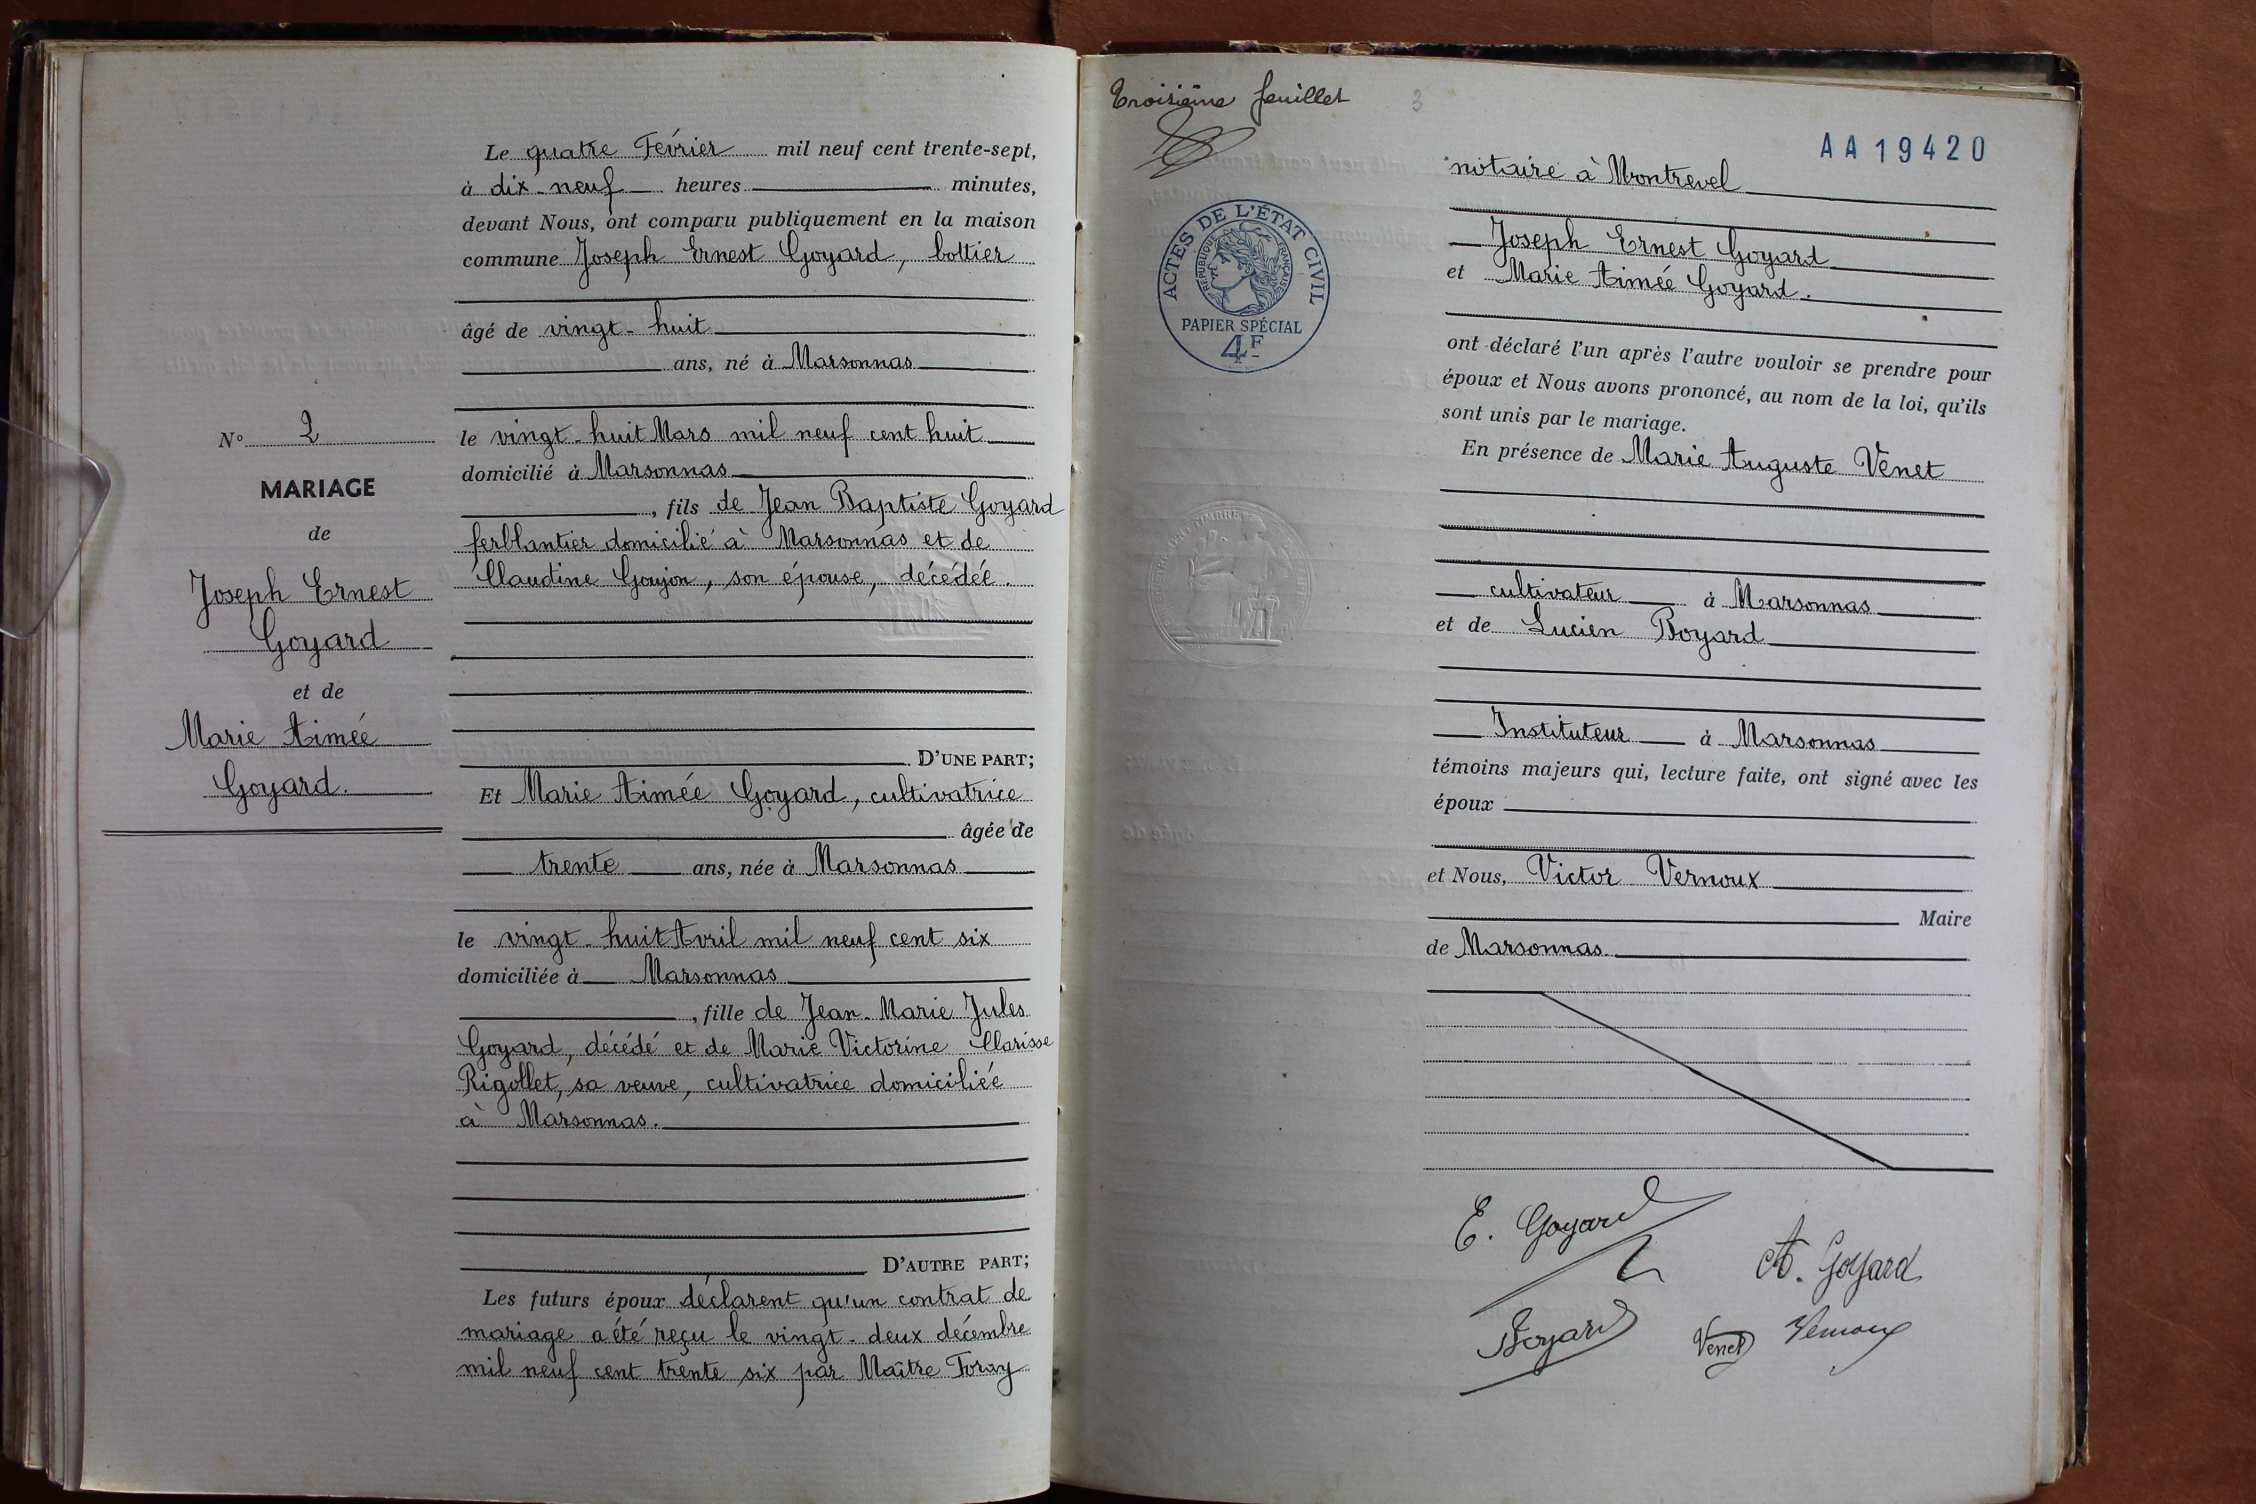 Le quatre Février mil neuf cent trente-sept,
à dix-neuf heures minutes,
devant Nous, ont comparu publiquement en la maison
commune Joseph Ernest Goyard, bottier
âgé de vingt-huit
ans, né à Marsonnas
N° 2
le vingt-huit Mars mil neuf cent huit
domicilié à Marsonnas
MARIAGE
, fils de Jean Baptiste Goyard
de
ferblantier domicilié à Marsonnas et de
Joseph Ernest
Claudine Goujon, son épouse, décédée.
Goyard
et de
Marie Aimée
Goyard.
D'UNE PART;
Et Marie Aimée Goyard, cultivatrice
âgée de
trente ans, née à Marsonnas
le vingt-huit Avril mil neuf cent six
domiciliée à Marsonnas
, fille de Jean-Marie Jules
Goyard, décédé et de Marie Victorine Clarisse
Rigollet, sa veuve, cultivatrice domiciliée
à Marsonnas.
D'AUTRE PART;
Les futurs époux déclarent qu'un contrat de
mariage a été reçu le vingt-deux décembre
mil neuf cent trente six par Maître Foray
Troisième feuillet 3
AA19420
notaire à Montrevel
ACTES DE L'ÉTAT CIVIL
RÉPUBLIQUE FRANÇAISE
PAPIER SPÉCIAL
4F
Joseph Ernest Goyard
et Marie Aimée Goyard.
ont déclaré l'un après l'autre vouloir se prendre pour
époux et Nous avons prononcé, au nom de la loi, qu'ils
sont unis par le mariage.
En présence de Marie Auguste Venet
cultivateur à Marsonnas
et de Lucien Boyard
Instituteur à Marsonnas
témoins majeurs qui, lecture faite, ont signé avec les
époux
et Nous, Victor Vernoux
Maire
de Marsonnas.
E. Goyard
A. Goyard
Boyard Venet Vernoux